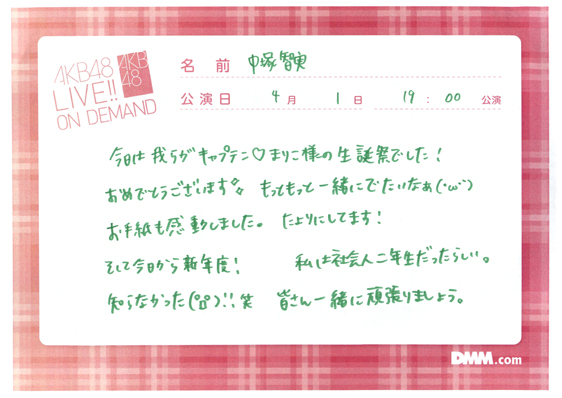 AKB48
LIVE!!
ON DEMAND
AKB
48
名前 中塚智実
公演日 4月 1日 19:00 公演
今日は我らがキャプテン♡まりこ様の生誕祭でした！
おめでとうございます もっともっと一緒にでたいなぁ(・ω・`)
お手紙も感動しました。 たよりにしてます！
そして今日から新年度！ 私は社会人二年生だったらしい。
知らなかった(°ロ°)!! 笑 皆さん一緒に頑張りましょう。
DMM.com